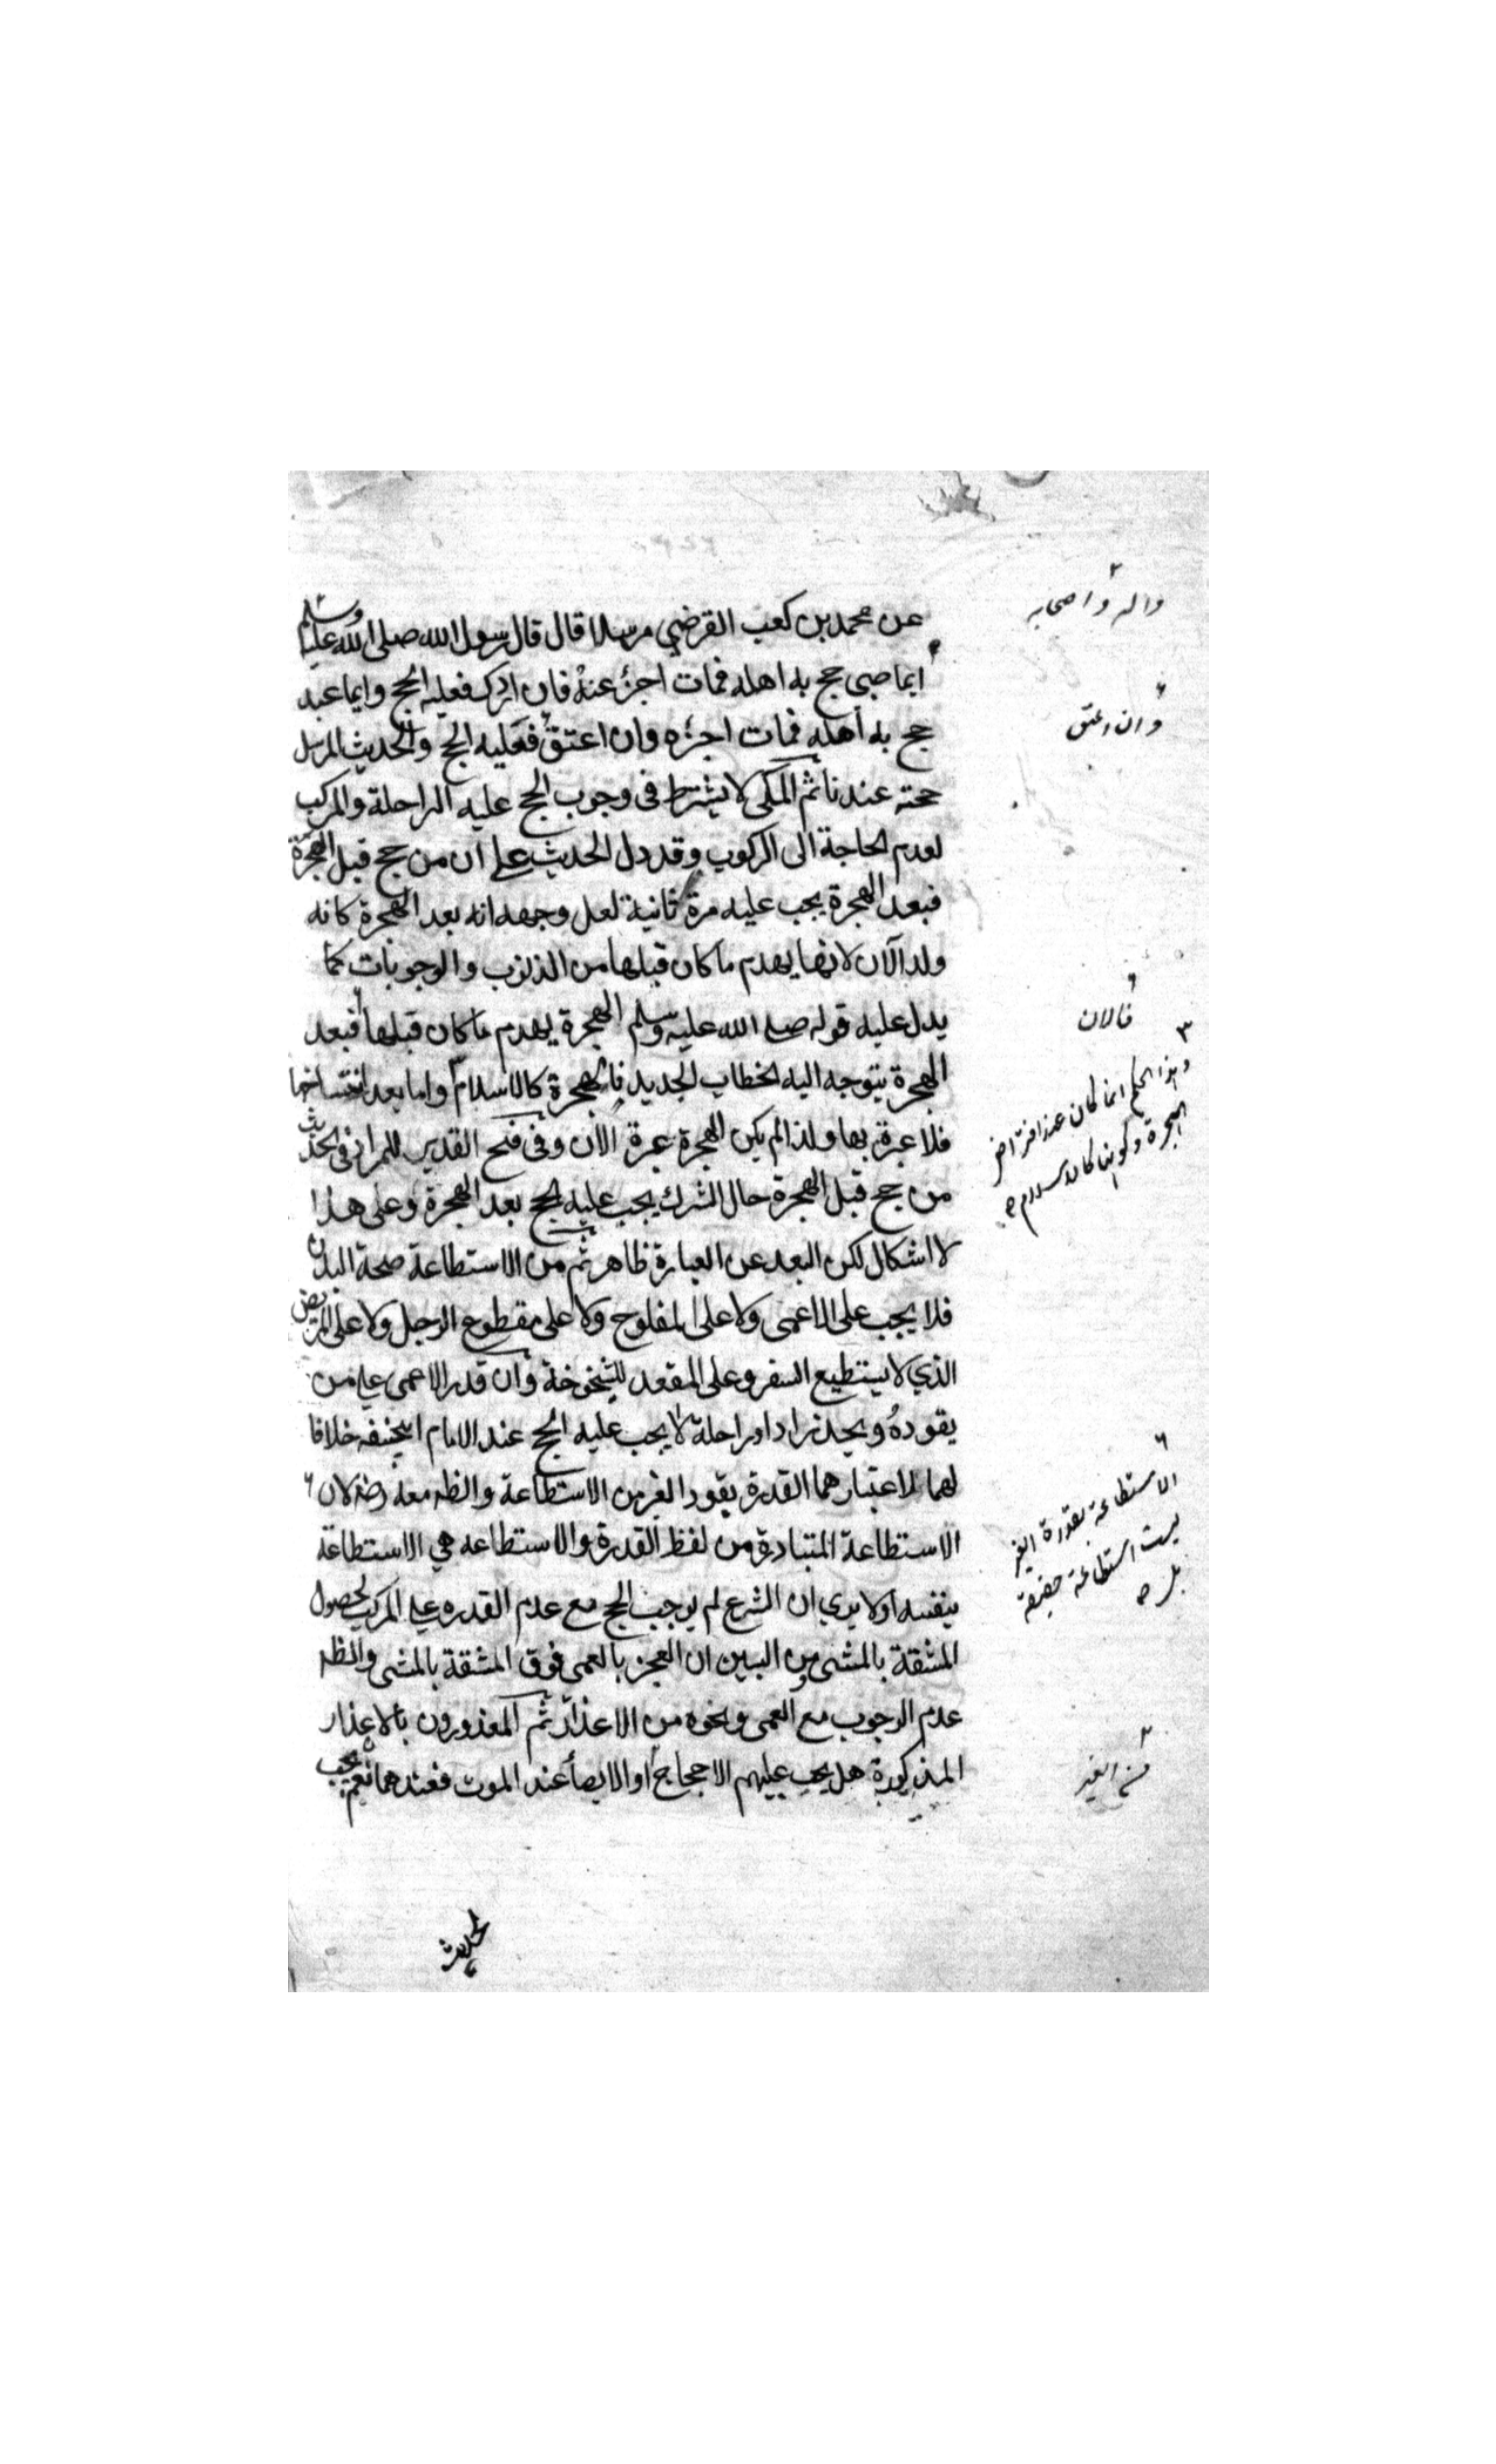 عن محمد بن كعب القرضي مرسلا قال قال رسول الله صلى الله عليه وسلم
ايما صبي حج به اهله فمات اجزء عنه فان ادرك فعليه الحج وايما عبد
حج به اهله فمات اجزءه وان اعتق فعليه الحج والحديث المرسل
حجة عندنا ثم المكي لا يشترط في وجوب الحج عليه الراحلة والمركب
لعدم الحاجة الى الركوب وقد دل الحديث على ان من حج قبل الهجرة
فبعد الهجرة يجب عليه مرة ثانية لعل وجهه انه بعد الهجرة كانه
ولد الآن لانها يهدم ما كان قبلها من الذنوب والوجوبات كما
يدل عليه قوله صلى الله عليه وسلم الهجرة يهدم ما كان قبلها فبعد
الهجرة يتوجه اليه الخطاب الجديد فالهجرة كالاسلام واما بعد انتساخها
فلا عبرة بها ولذا لم يكن الهجرة عبرة الآن وفي فتح القدير المراد في الحديث
من حج قبل الهجرة حال الشرك يجب عليه الحج بعد الهجرة وعلى هذا
لا اشكال لكن البعد عن العبارة ظاهر ثم من الاستطاعة صحة البدن
فلا يجب على الاعمى ولا على المفلوج ولا على مقطوع الرجل ولا على المريض
الذي لا يستطيع السفر وعلى المقعد للشيخوخة وان قدر الاعمى على من
يقوده ويجد زادا وراحلة لا يجب عليه الحج عند الامام ابيحنفه خلافا
لهما لاعتبارهما القدرة بقود الغير من الاستطاعة والظه معه رضه لان
الاستطاعة المتبادرة من لفظ القدرة والاستطاعه هي الاستطاعة
بنفسه اولا يدي ان الشرع لم يوجب الحج مع عدم القدره على المركب لحصول
المشقة بالمشي ومن البين ان العجز بالعمى فوق المشقة بالمشي والظه
عدم الوجوب مع العمى ونحوه من الاعذار ثم المعذورون بالاعذار
المذكورة هل يجب عليهم الاحجاج او الايصأ عند الموت فعندهما نعم يجب
لحديث
واله واصحابه
وان اعتق
فالان
وهذا الحكم انما كان عند افتراض
الهجرة وكونها كالاسلام
الاستطاعة بقدرة الغير
ليست استطاعة حقيقة